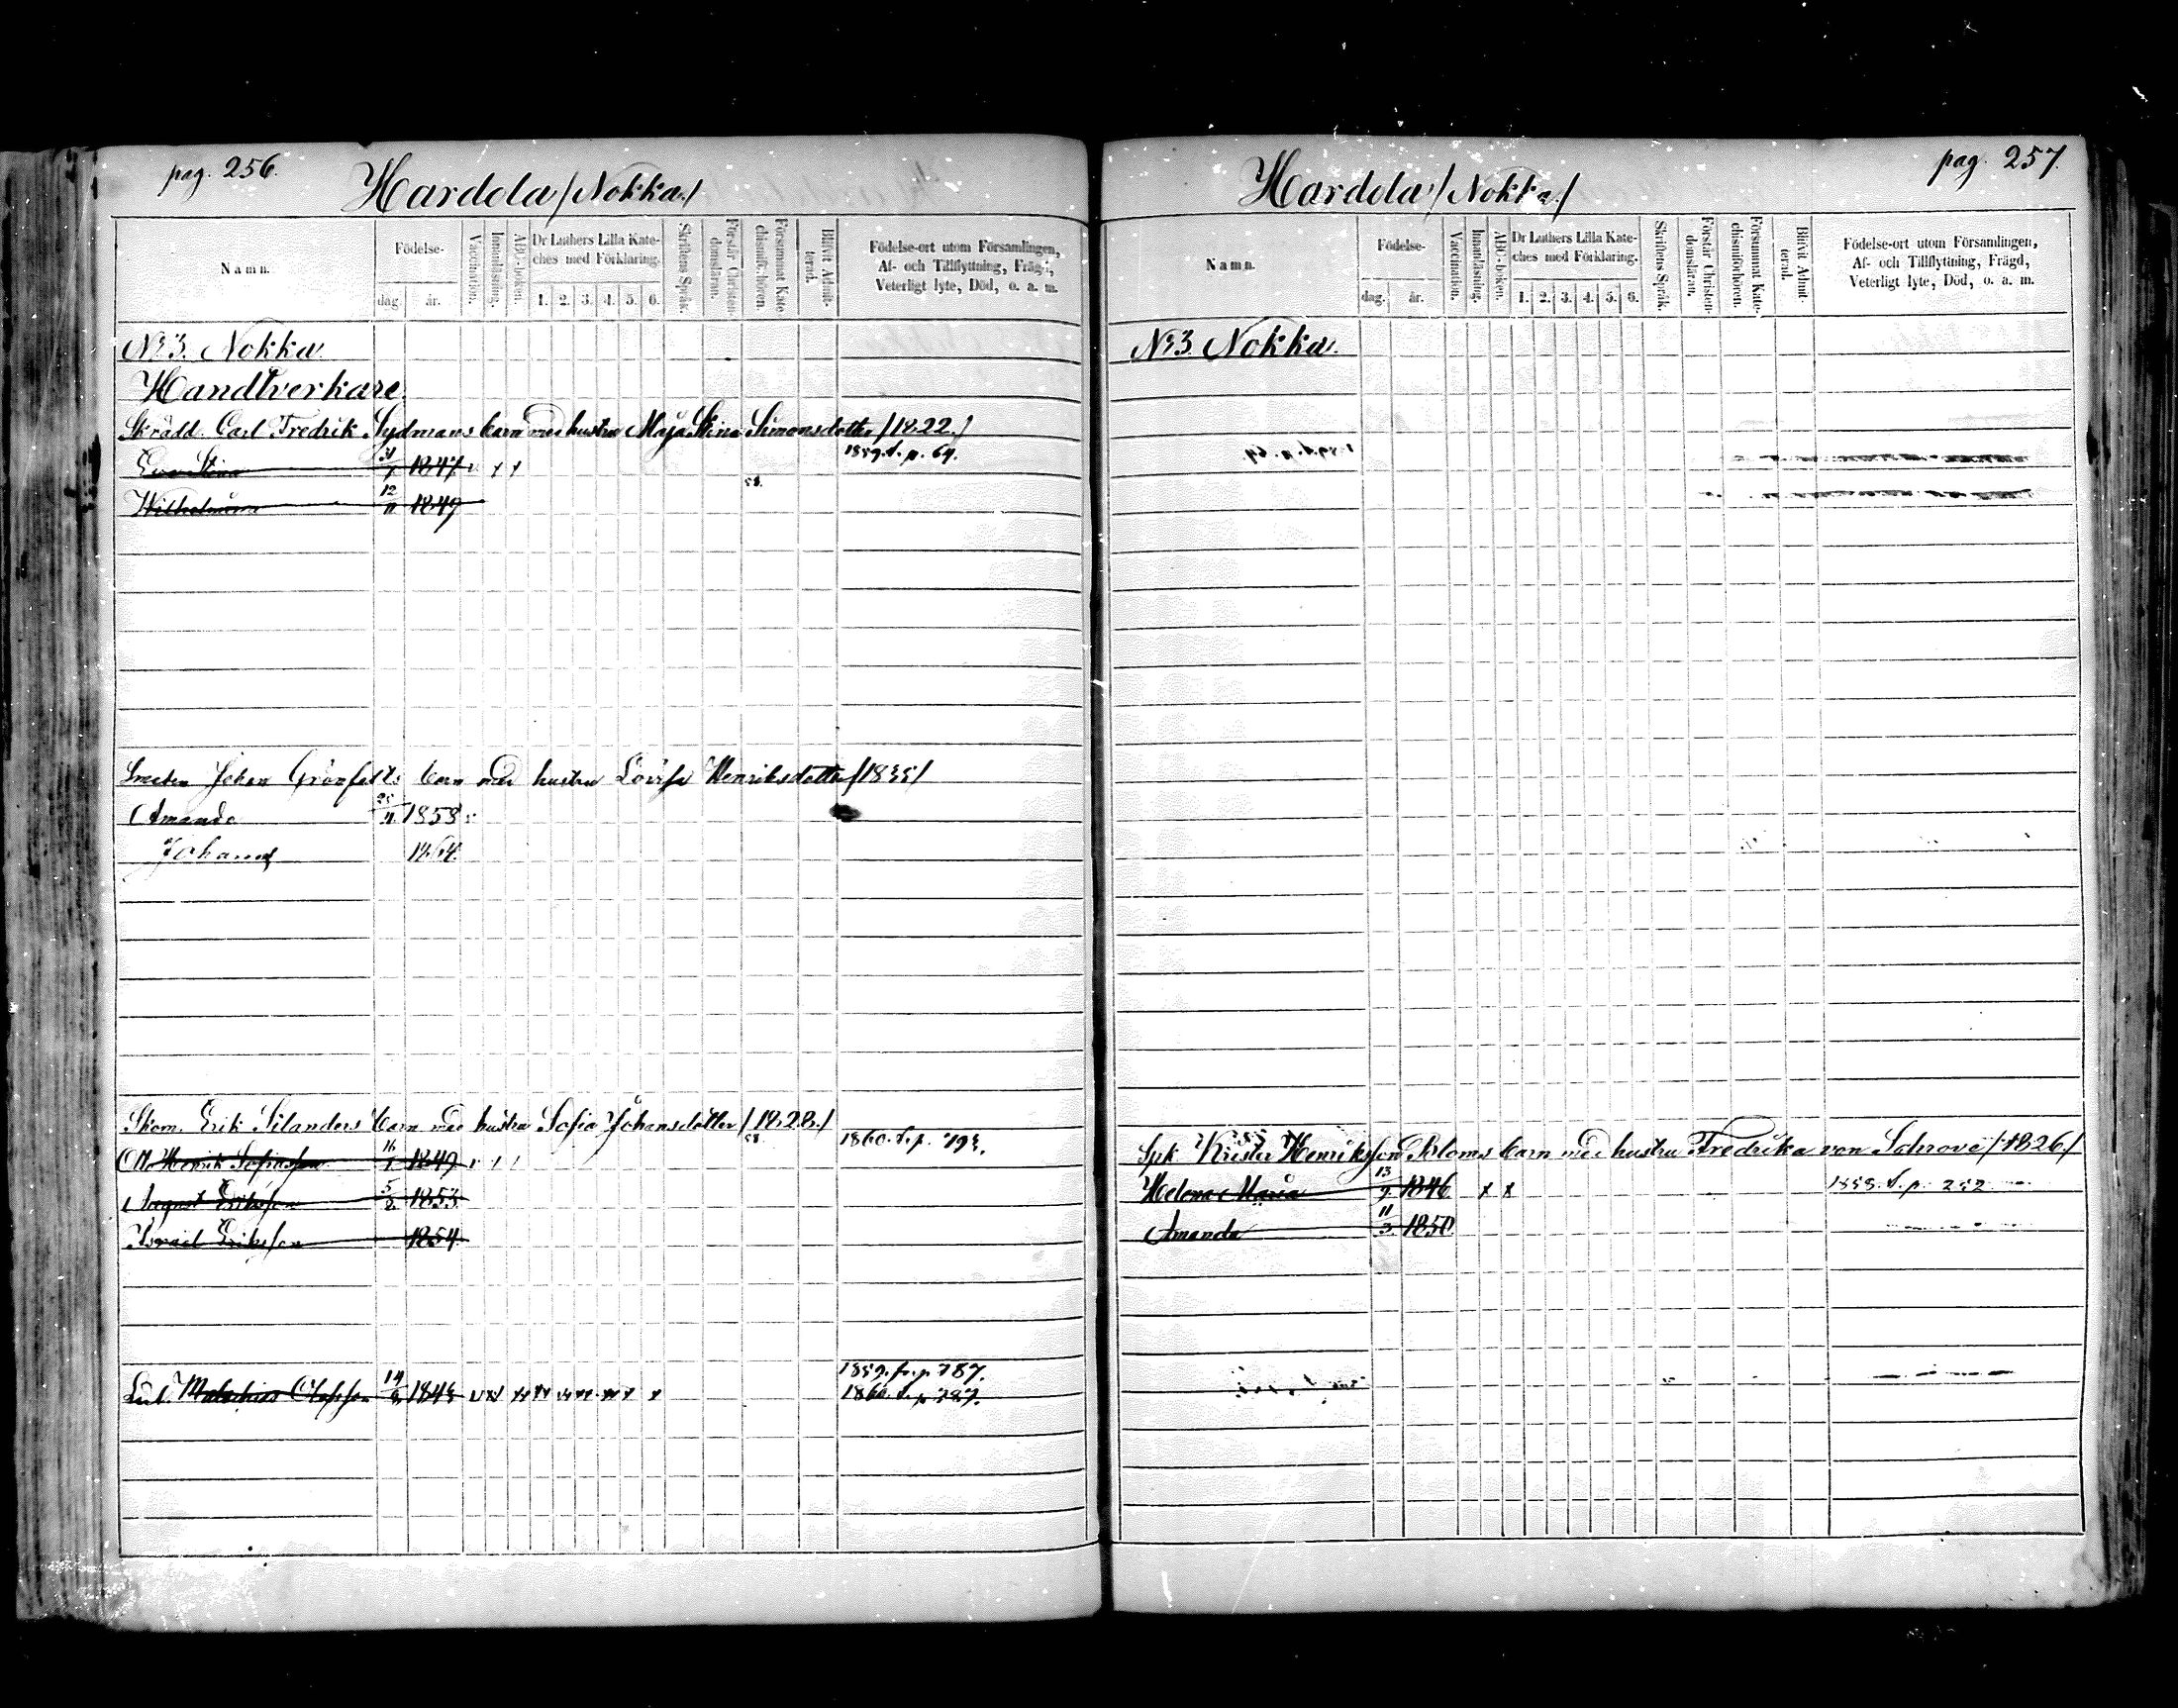 pag. 256.
Hardola /Nokka./
Namn.
Födelse-
dag.
år.
Vaccination.
Innanläsning.
ABC-boken.
Dr Luthers Lilla Kate-
ches med Förklaring.
1. 2. 3. 4. 5. 6.
Skriftens Språk.
Förstår Christen-
domsläran.
Försummat Kate
chismiförhören.
Blifvit Admit-
terad.
Födelse-ort utom Församlingen,
Af- och Tillflyttning, Frägd,
Veterligt lyte, Död, o. a. m.
No 3. Nokka.
Handtverkare
Skrädd. Carl Fredrik Sydmans barn med hustru Maja Stina Simonsdotter /1822./
Eva Stina 1847 x x 1859. t. p. 64.
Wilhelmina 12/11 1849 58.
Smeden Johan Grönfelts barn med hustru Lovisa Henriksdotter /1835/
Amanda 1858
Johanna
Skom. Erik Silanders barn med hustru Sofia Johansdotter /1828./
Henrik Sofiasson 16/1 1849 58. 1860. t. p. 193.
August Eriksson 5/2 1853
Israel Eriksson 1854
1859. fr. p. 787.
Matthias Olofsson 14/9 1843 1860. t. p. 787.
pag. 257.
Hardola /Nokka./
Namn.
Födelse-
dag.
år.
Vaccination.
Innanläsning.
ABC-boken.
Dr Luthers Lilla Kate-
ches med Förklaring.
1. 2. 3. 4. 5. 6.
Skriftens Språk.
Förstår Christen-
domsläran.
Försummat Kate-
chismiförhören.
Blifvit Admit-
terad.
Födelse-ort utom Församlingen,
Af- och Tillflyttning, Frägd,
Veterligt lyte, Död, o. a. m.
No 3. Nokka.
Krister Henriksson Bloms barn med hustru Fredrika von Schrove /1826/
Helena Maria 13/9 1846 x x 1858. t. p. 252
Amanda 11/3 1850